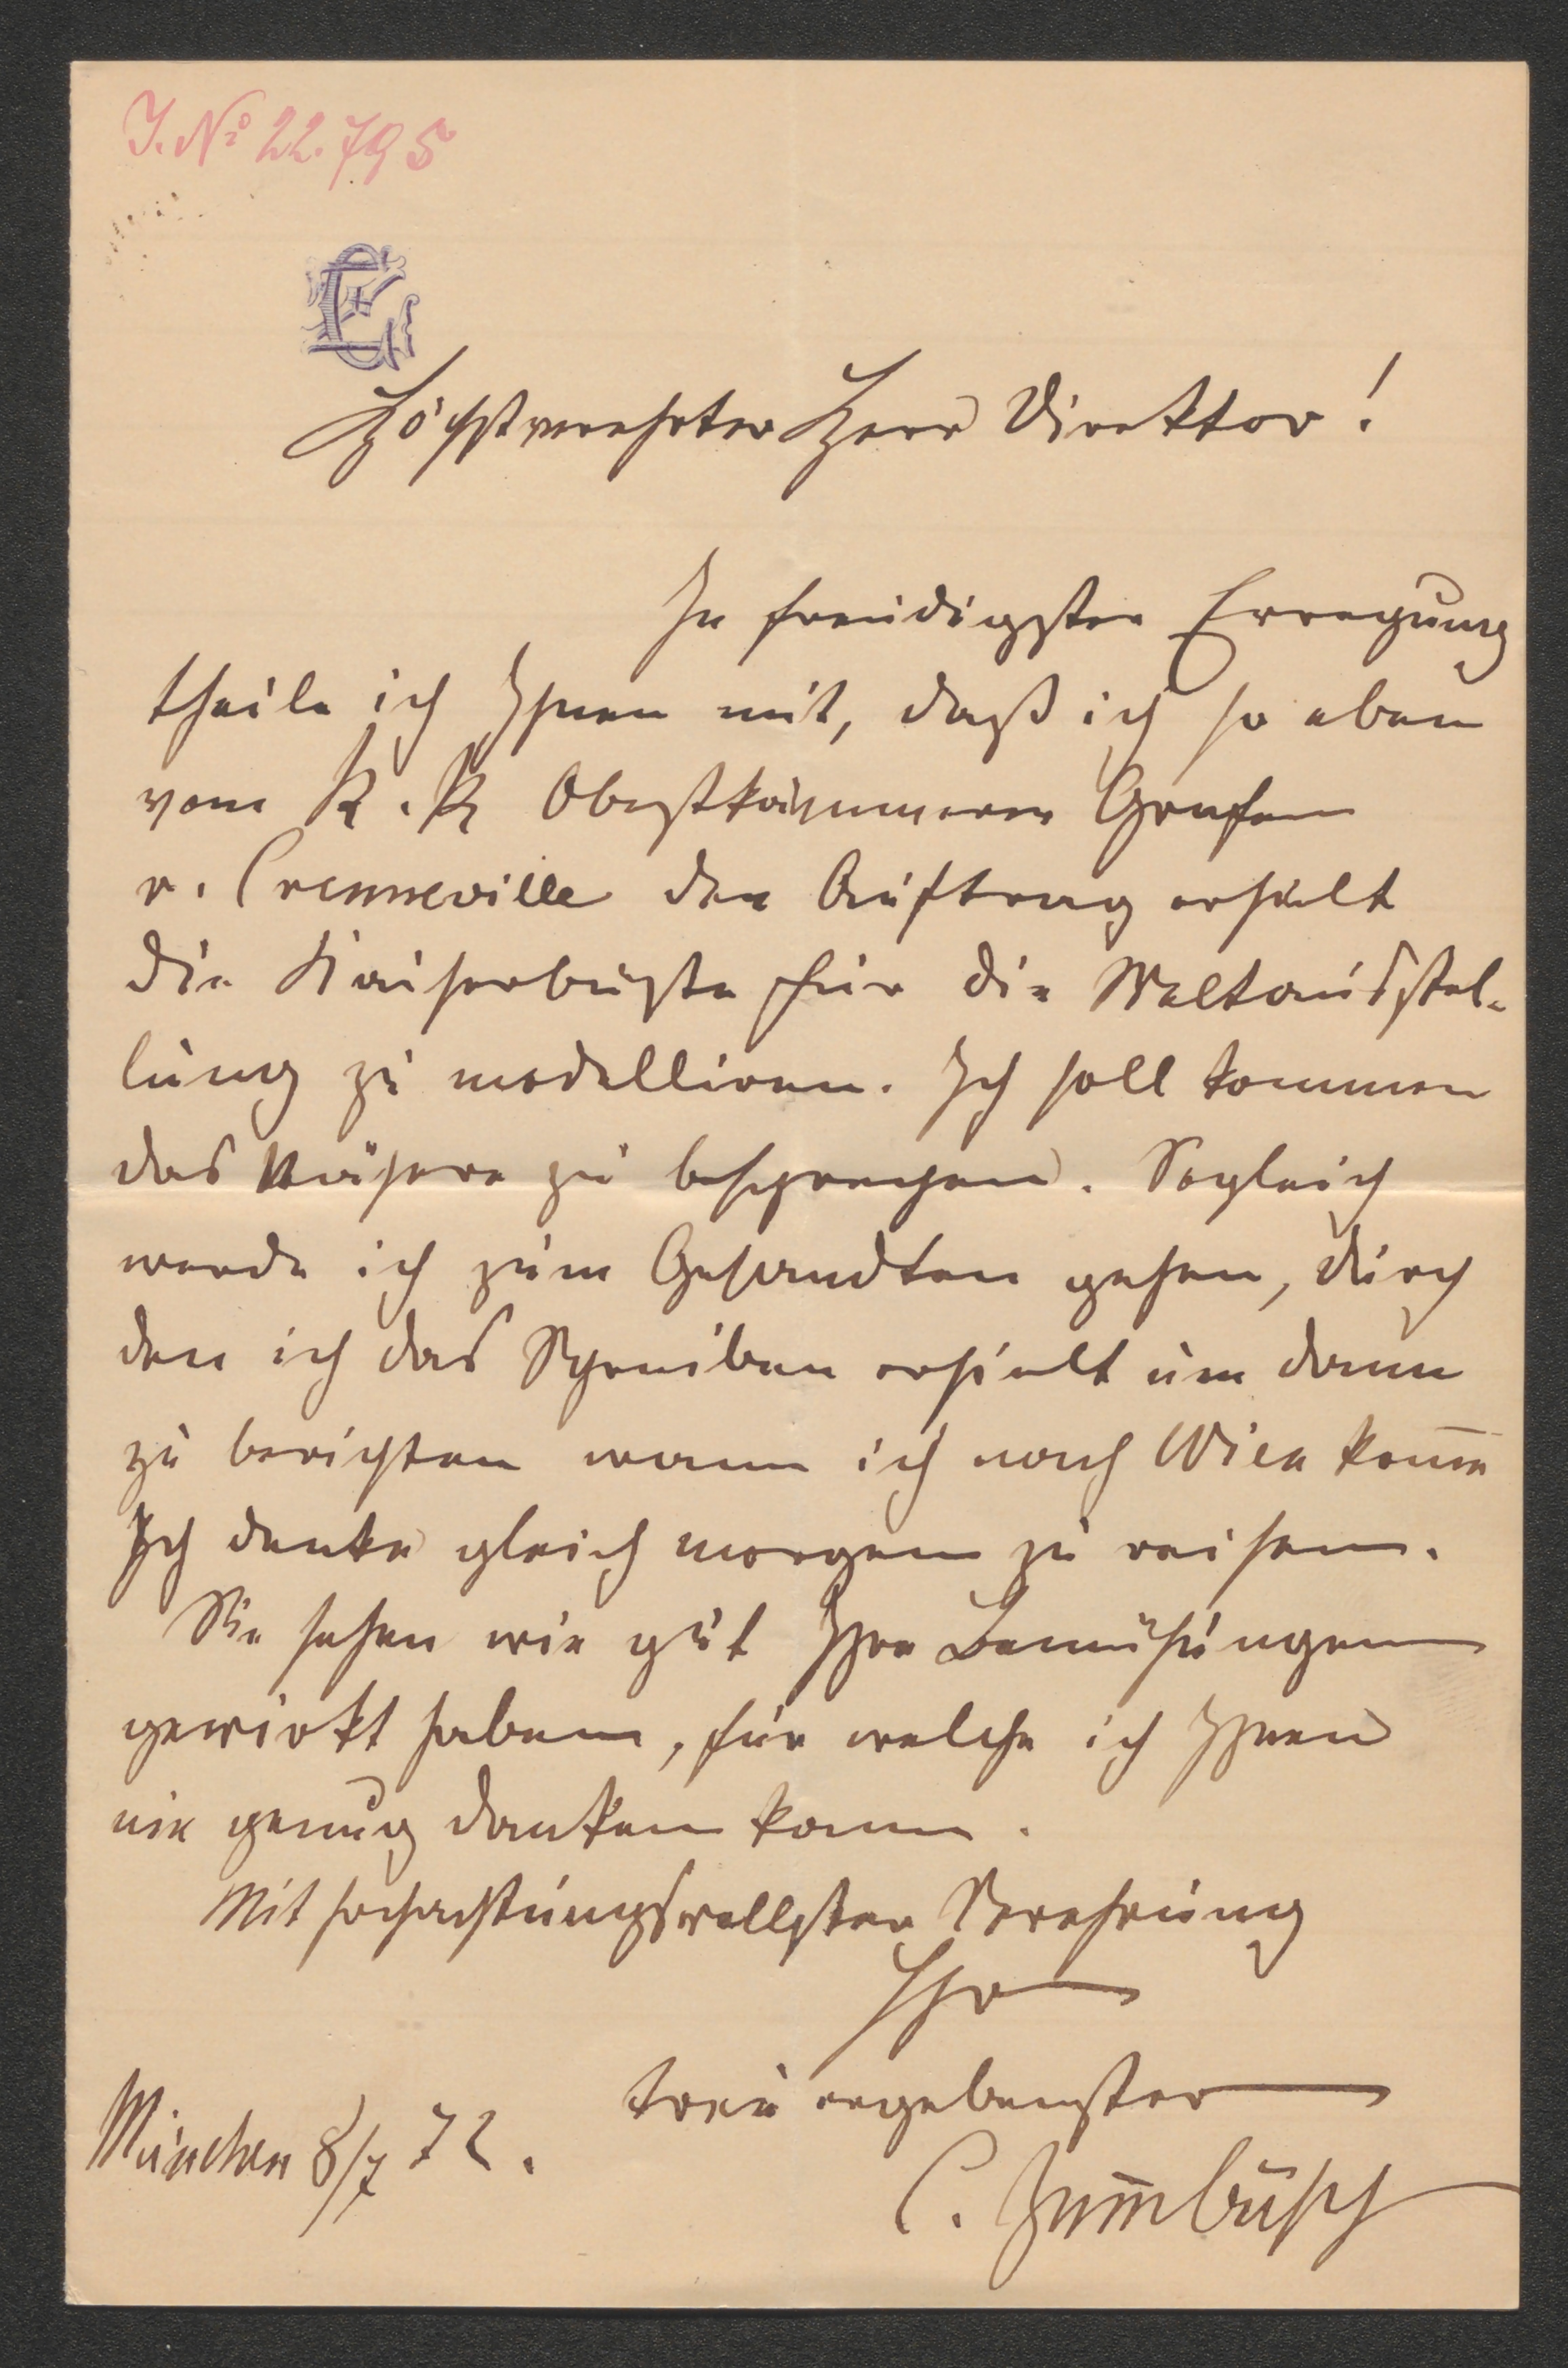 J. No 22.795
Höchstverehrter Herr Direktor!
In freudigster Erregung
theile ich Ihnen mit, daß ich so eben
vom K. K Obestkämmerer Grafen
v. Crenneville den Auftrag erhielt
die Kaiserbüste für die Weltausstel-
lung zu modelliren. Ich soll kommen
das Nähere zu besprechen. Sogleich
werde ich zum Gesandten gehen, durch
den ich das Schreiben erhielt um dann
zu berichten wann ich nach Wien kom̅e
Ich denke gleich morgen zu reisen.
Sie sehen wie gut Ihre Bemühungen
gewirkt haben, für welche ich Ihnen
nie genug danken kann.
Mit hochachtungsvollster Verehrung
Ihr
treu ergebenster
München 8/7 72.
C. Zum̅busch